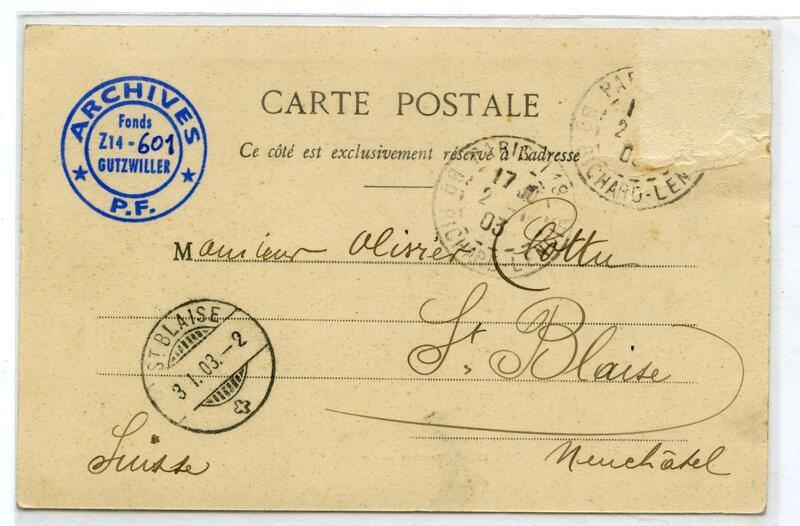 ARCHIVES
Fonds
Z14-601
GUTZWILLER
P.F.
CARTE POSTALE
Ce côté est exclusivement réservé à l'adresse
PARIS
17
2
03
RICHARD-LEN
PARI
1
2
03
RICHARD-LEN
Monsieur Olivier Cottu
ST BLAISE
3 1.03.-2
St. Blaise
Suisse
Neuchâtel